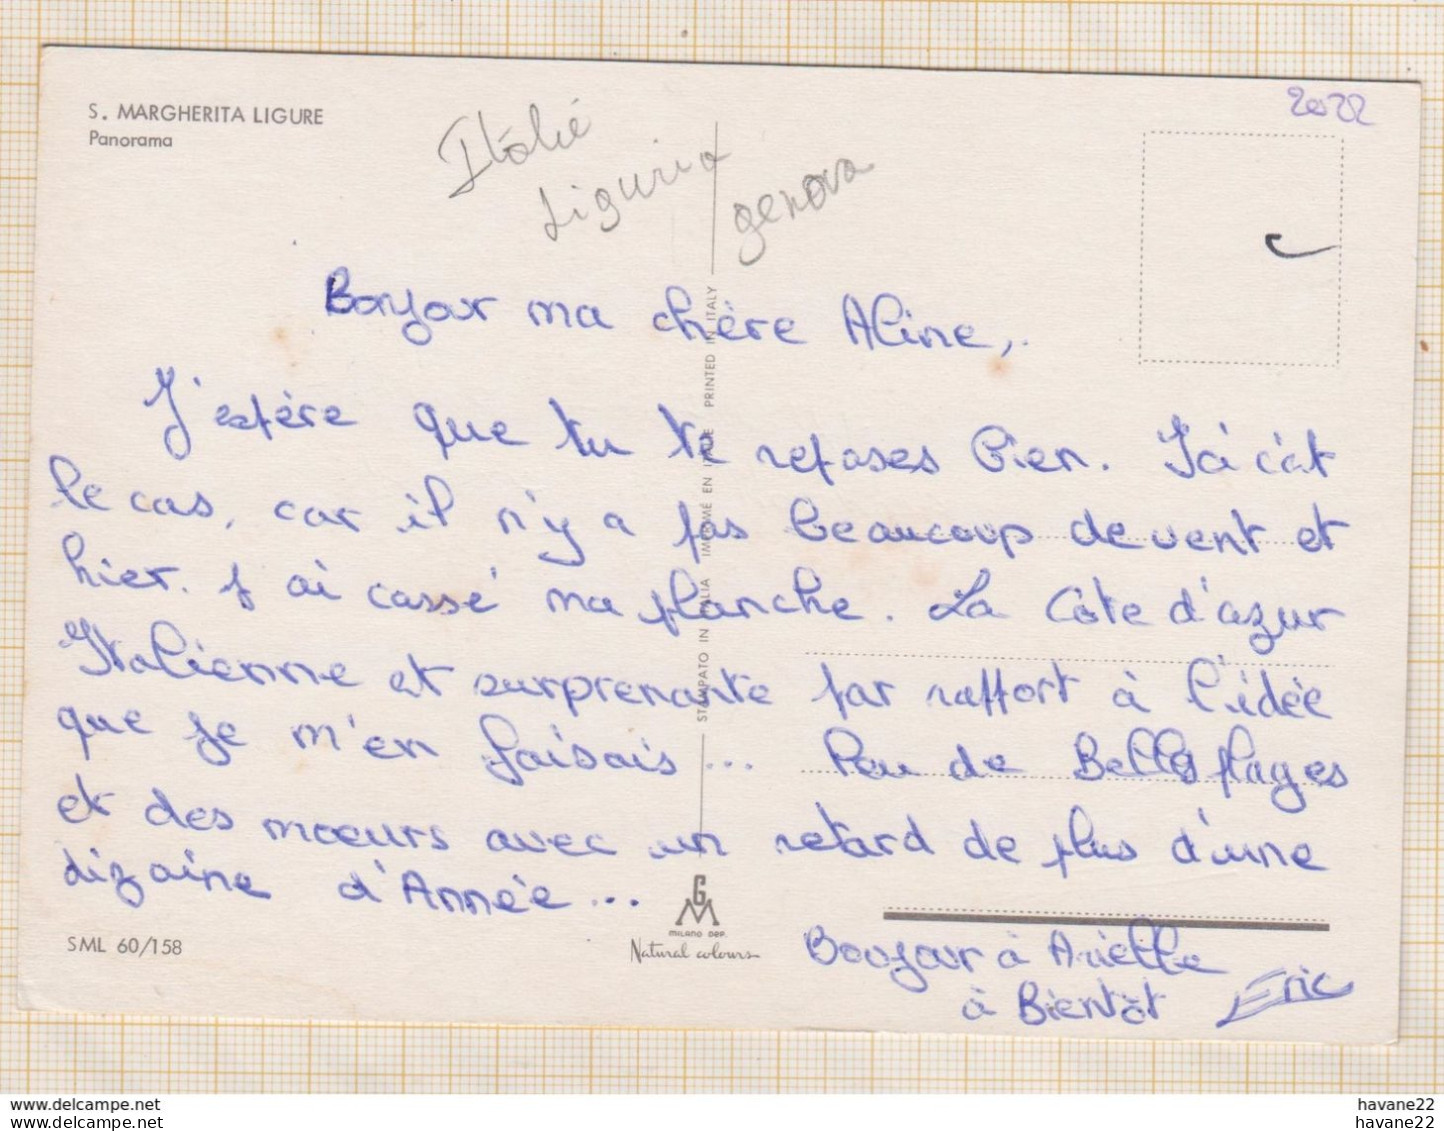 S. MARGHERITA LIGURE
Panorama
2022
Italie
Liguria
genova
Bonjour ma chère Aline,
J'espère que tu te reposes bien. Ici c'et
le cas, car il n'y a pas beaucoup de vent et
hier j'ai cassé ma planche. La Côte d'azur
Italienne et surprenante par rapport à l'idée
que je m'en faisais... Peu de Belles plages
et des moeurs avec un retard de plus d'une
dizaine d'Année...
Bonjour à Arielle
à Bientôt Eric
SML 60/158
GM
MILANO DEP.
Natural colours
STAMPATO IN ITALIA IMPRIMÉ EN ITALIE PRINTED IN ITALY
www.delcampe.net
www.delcampe.net
havane22
havane22